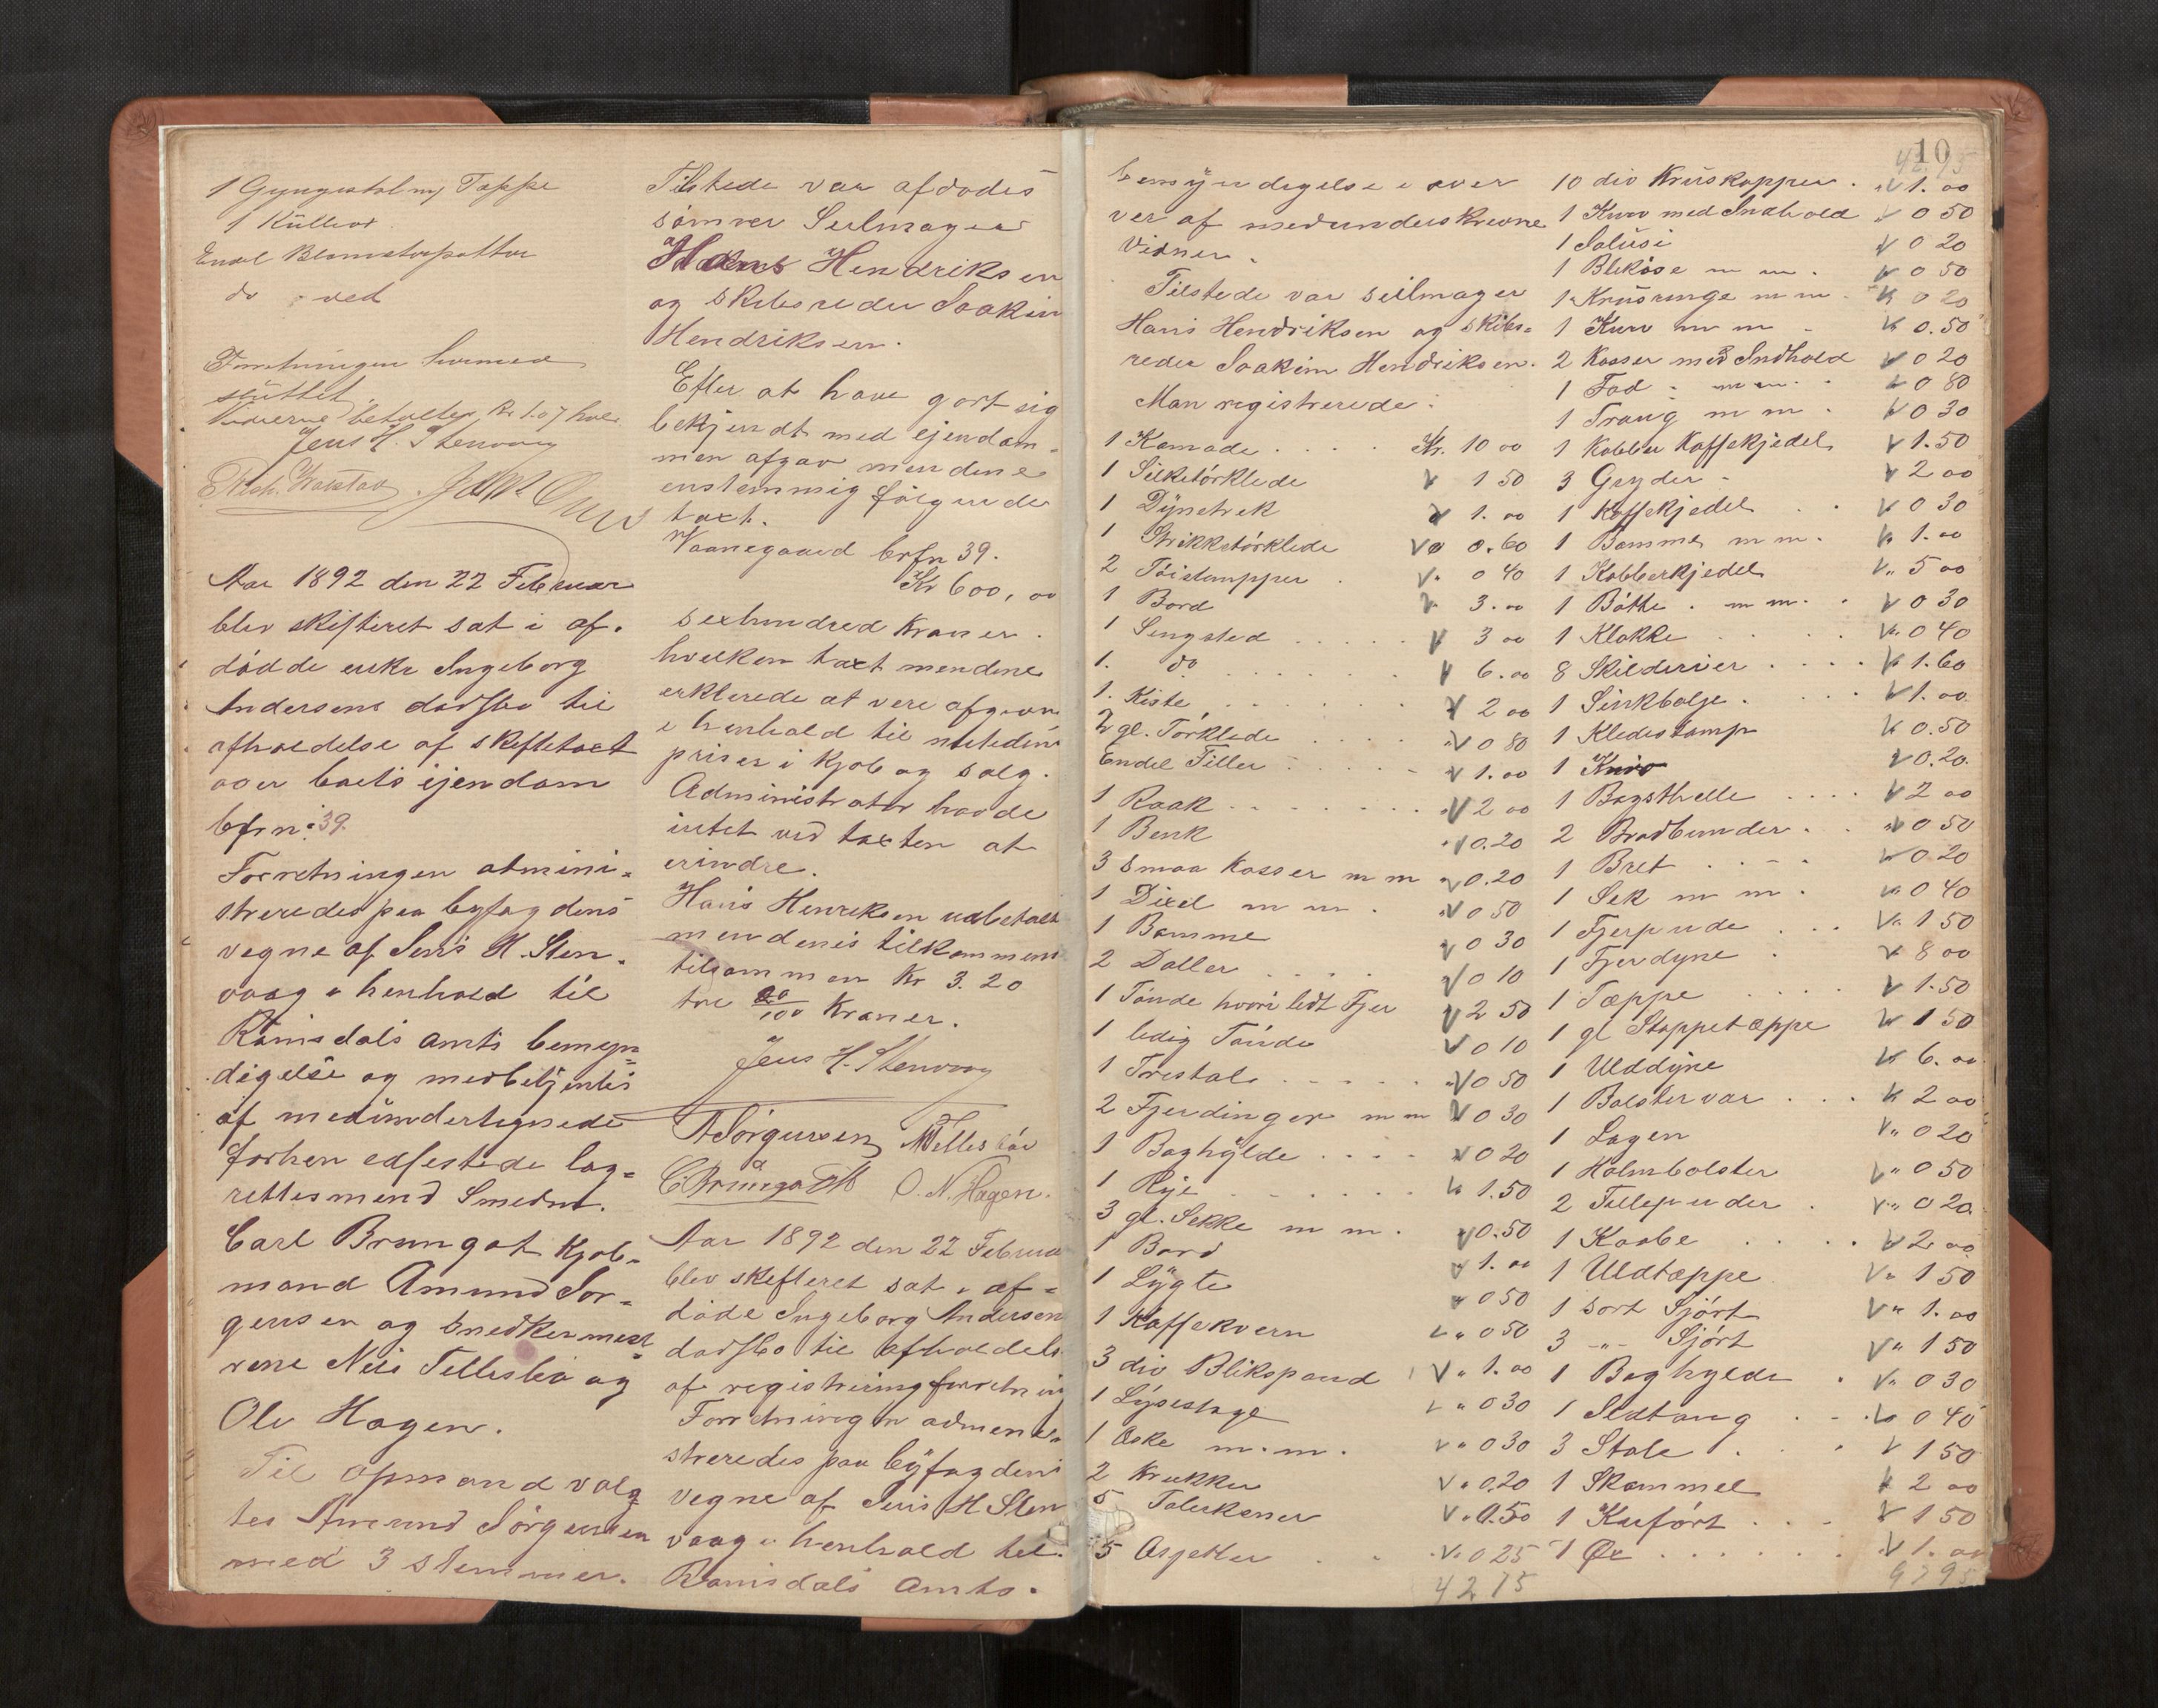 1 Gyngestol m/ Tæppe
1 Kullror
Endel Blomsterpotter
do ved
Forretningen hermed
sluttet.
Vidnerne betaltes Kr. 1.07 hver
Jens H. Stenvaag
Aar 1892 den 22 Februar
blev skifteret sat i af-
dødde enke Ingeborg
Andersens dødsbo til
afholdelse af skiftetaxt
over boets ejendom
bfr n: 39.
Forretningen atmini-
streredes paa byfogdens
vegne af Jens H. Sten-
vaag i henhold til
Romsdals amts bemyn-
digelse og medbetjentes
af medundertegnede
forhen edfestede lag-
rettesmend Smedm.
Carl Brungot Kjøb-
mand Amund Jør-
gensen og snedkermest-
rene Nils Tellesbø og
Ole Hagen.
Til opmand valg-
tes Amund Jørgensen
med 3 stemmer.
Tilstede var afdødes
sønner Seilmager
Hans Hendriksen
og skibsreder Joakim
Hendriksen.
Efter at have gort sig
bekjendt med ejendom-
men afgav mendene
enstemmig følgende
taxt.
Vaanegaard brfn 39.
Kr 600,00
sexhundred Kroner.
hvelken taxt mendene
erklerede at vere afgiven
i henhold til nutidens
priser i kjøb og salg.
Administrator havde
intet ved taxten at
erindre.
Hans Henreksen udbetalt
mendenes tilkommende
tilsammen Kr 3.20
tre 20/100 Kroner.
Jens H. Stenvaag
A Jørgensen N Tellesbø
C Brungot O. N. Hagen.
Aar 1892 den 22 Februar
blev skefteret sat i af-
døde Ingeborg Andersens
dødsbo til afholdelse
af registreringforretning
Forretningen admene-
streredes paa byfogdens
vegne af Jens H Sten
vaag i henhold til
Romsdals Amts.
10
4275
bemyndigelse i over
ver af medunderskrevne
Vidner.
Tilstede var seilmager
Hans Hendriksen og skibs-
reder Joakim Hendriksen.
Man registrerede:
1 Komode . . . . Kr. 10 00
1 Silketørklede 1 50
1 Dynetrek 1.00
1 Strikketørklede 0.60
2 Tøistamper . 0 40
1 Bord 3.00
1 Sengsted . . . . . 3 00
1. do . . . . . . 6.00
1. Kiste . . . . . . 2 00
2 gl. Tørklede . . . . 0 80
Endel Filler . . . . . 1.00
1 Raak . . . . . . . 2 00
1 Benk 0.20
3 smaa Kasser m m 0.20
1 Dixel m m . 0 50
1 Bomme 0 30
2 Doller . . . . 0 10
1 Tønde hvori lidt Fjer 2 50
1 ledig Tønde 0 10
1 Trestol . . . . . 0 50
2 Fjerdinger m m 0 30
1 Boghylde . . . . 0 20
1 Rye . . . . . . 1.50
3 gl. Sekke m m . 0.50
1 Bord 1.00
1 Lygte 0 50
1 Kaffekvern 0 50
3 div Blikspand 1.00
1 Lysestage 0 30
1 Æske m.m. 0 30
2 Krukker 0.20
5 Talerkener 0.50
5 Asjetter . . 0 25
4275
10 div Kruskopper . 1.00
1 Kurv med Indhold 0 50
1 Salusi 0 20
1 Blikøse m m . 0 50
1 Krusringe m m . 0 20
1 Kurv m m . 0.50
2 Kasser med Indhold 0 20
1 Fad . m m . . 0 80
1 Traug m m . 0 30
1 Kobber Kaffekjedel 1.50
3 Gryder . 2 00
1 Kaffekjedel . . 0 30
1 Bomme m m . 1.00
1 Kobberkjedel 5 00
1 Bøtte . m m . . 0 30
1 Klokke . . . . . 0 40
8 Skilderier . . . . 1.60
1 Sinkbalje . . . . 1.00
1 Kledestamp 0.50
1 Kniv 0.20
1 Bagsthelle . . . . 2 00
2 Brødbunder . . 0 50
1 Bret . . . . 0 20
1 Sek m m . 0 40
1 Fjerpude . . . 1 50
1 Fjerdyne . 8 00
1 Tæppe . . . . 1.50
1 gl Stoppetæppe 1 50
1 Ulddyne 6.00
1 Bolstervar . . . 2 00
1 Lagen 0 20
1 Halmbolster 0 50
2 Fillepuder . 0 20
1 Kaabe . . . . . 2.00
1 Uldtæppe 1 50
1 sort Sjørt 1.00
3 -"- Sjørt 1 50
1 Boghylde . 0 30
1 Ildtang . . . 0 40
3 Stole . . . 1 50
1 Skammel 2 00
1 Kuført . . . 1 50
1 Øx . . . . . . . 1.00
9795